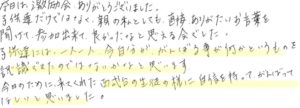 今日は、激励会ありがとうございました。
子供達だけではなく、親の私としても、皆様ありがたいお言葉を
聞けて、参加出来て良かったなと思える会でした。
子供達には、一人一人、今自分が、がんばる事が何かというものを
認識できたのではないかなと思います
今日のために、来てくれた西武台の生徒の様に、自信を持って、がんばって
ほしいと思いました。